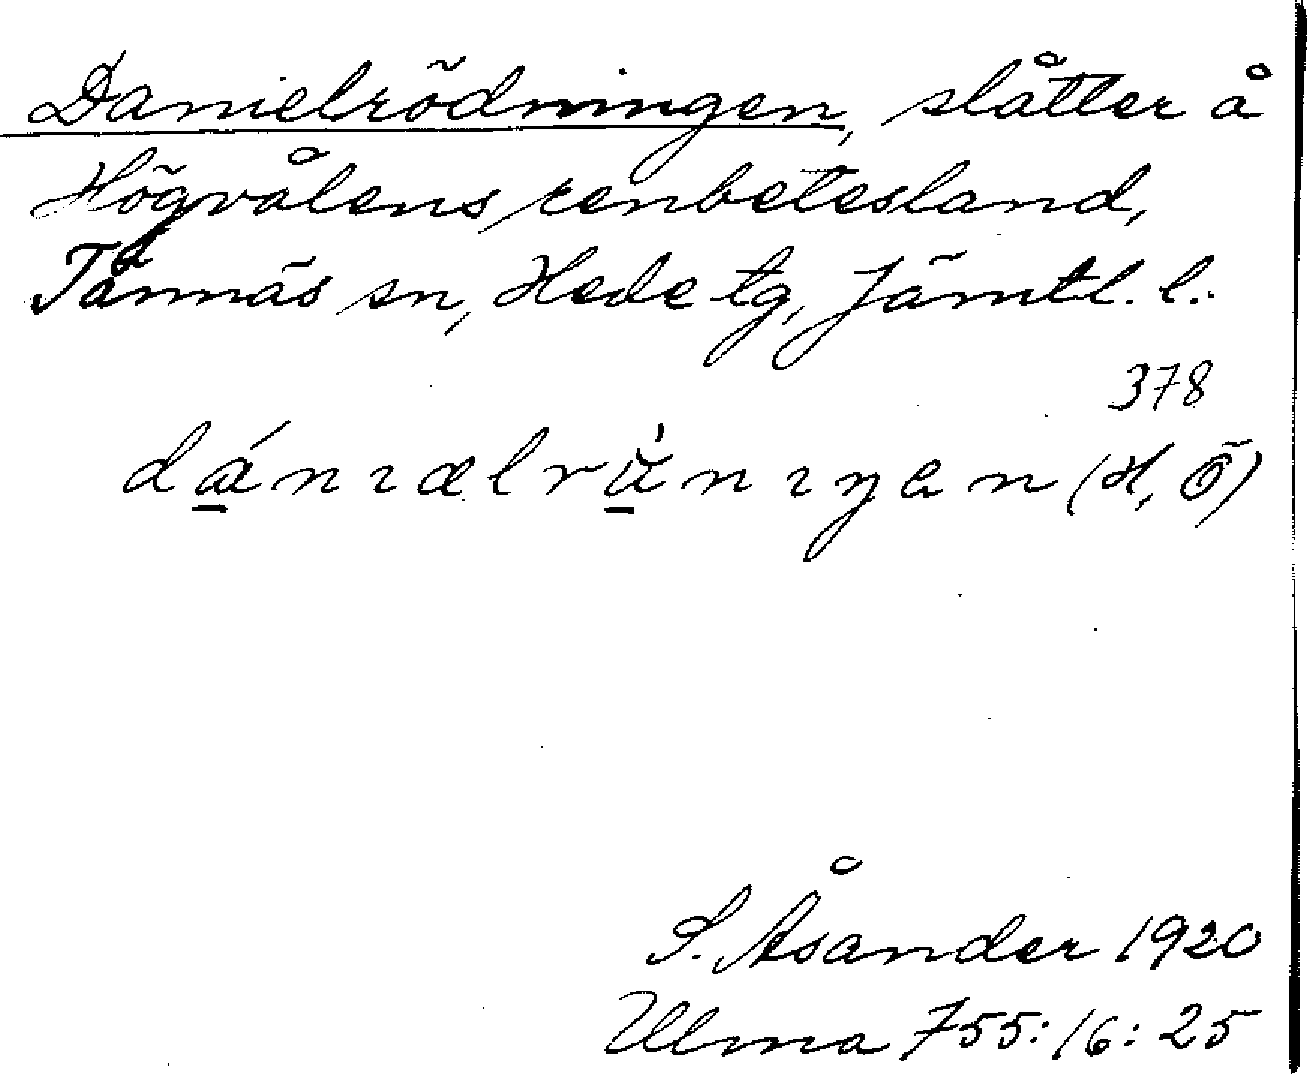 Danielrödningen, slåtter å
Högvålens renbetesland,
Tännäs sn, Hede tg, Jämtl. l.
378
(H, Ö)
S. Åsander 1920
Ulma 755:16:25